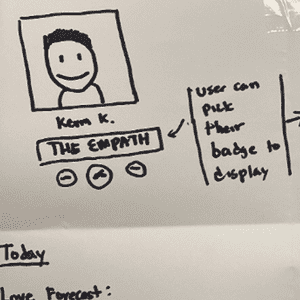 Kevin K.
THE EMPATH
User can
pick
their
badge to
display
Today
Love Forecast: